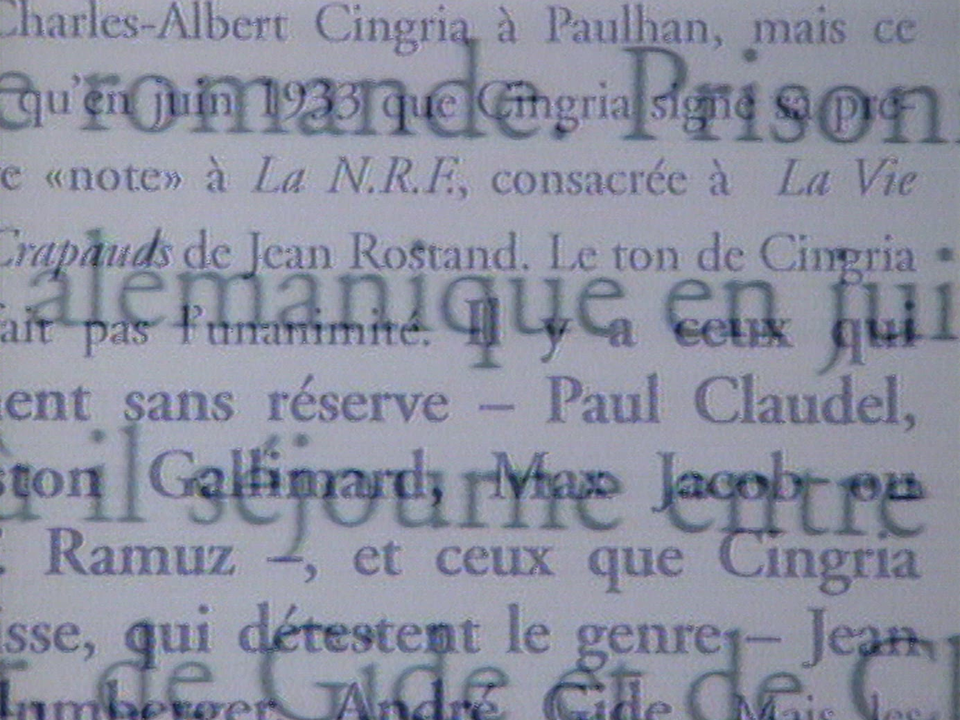 Charles-Albert Cingria à Paulhan, mais ce
qu'en juin 1933 que Cingria signe sa pre-
e «note» à La N.R.F., consacrée à La Vie
Crapauds de Jean Rostand. Le ton de Cingria
fait pas l'unanimité. Il y a ceux qui
ent sans réserve – Paul Claudel,
ston Gallimard, Max Jacob ou
Ramuz –, et ceux que Cingria
isse, qui détestent le genre – Jean
lumberger, André Gide. Mais les
e romande. Prison
alémanique en jui
à il séjourne entre
de Gide et de Cl